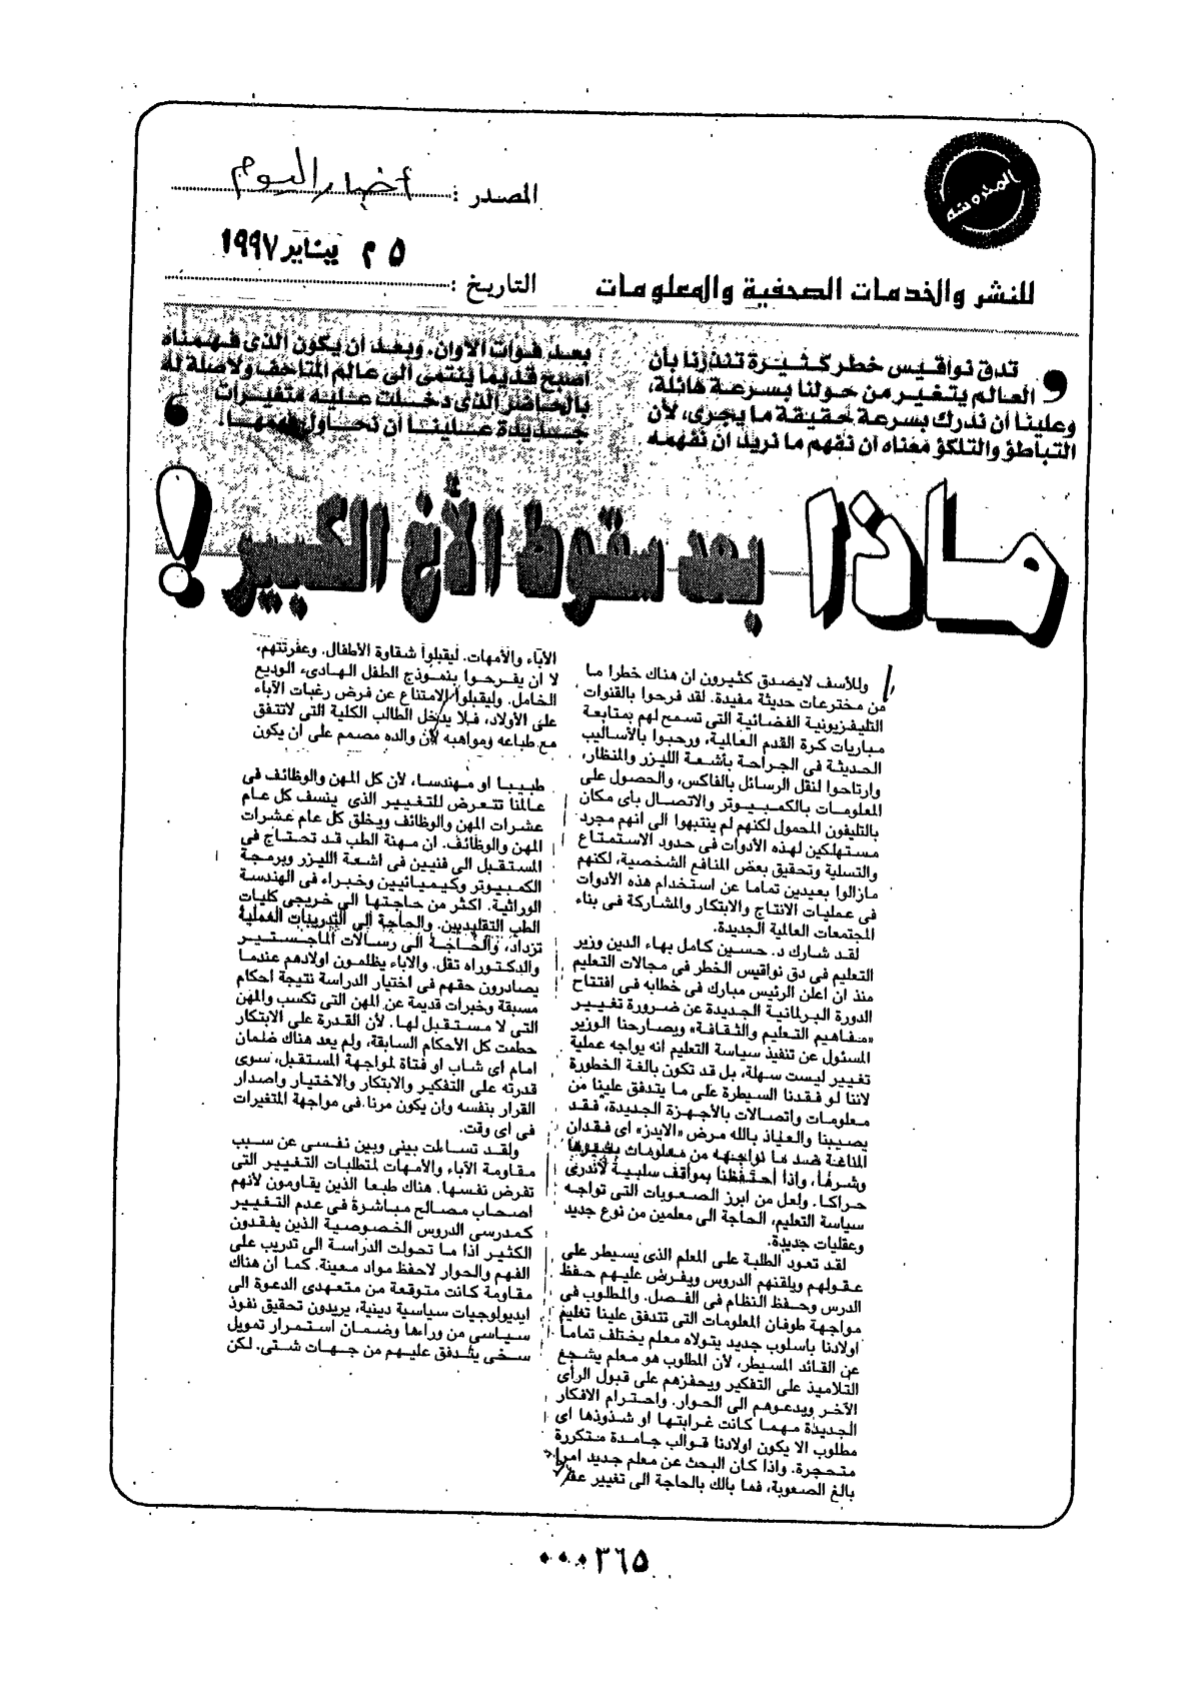 المحروسة
للنشر والخدمات الصحفية والمعلومات
المصدر : أخبار اليوم
التاريخ : ٢٥ يناير ١٩٩٧
تدق نواقيس خطر كثيرة تنذرنا بأن
العالم يتغير من حولنا بسرعة هائلة،
وعلينا أن ندرك بسرعة حقيقة ما يجرى، لأن
التباطؤ والتلكؤ معناه أن نفهم ما نريد أن نفهمه
بعد فوات الأوان. وبعد أن يكون الذى فهمناه
أصبح قديما ينتمى الى عالم المتاحف ولاصلة له
بالحاضر الذى دخلت عليه متغيرات
جديدة علينا أن نحاول فهمها.
ماذا بعد سقوط الأخ الكبير !
وللأسف لايصدق كثيرون ان هناك خطرا ما
من مخترعات حديثة مفيدة. لقد فرحوا بالقنوات
التليفزيونية الفضائية التى تسمح لهم بمتابعة
مباريات كرة القدم العالمية، ورحبوا بالأساليب
الحديثة فى الجراحة بأشعة الليزر والمنظار،
وارتاحوا لنقل الرسائل بالفاكس، والحصول على
المعلومات بالكمبيوتر والاتصال بأى مكان
بالتليفون المحمول لكنهم لم ينتبهوا الى انهم مجرد
مستهلكين لهذه الأدوات فى حدود الاستمتاع
والتسلية وتحقيق بعض المنافع الشخصية، لكنهم
مازالوا بعيدين تماما عن استخدام هذه الأدوات
فى عمليات الانتاج والابتكار والمشاركة فى بناء
المجتمعات العالمية الجديدة.
لقد شارك د. حسين كامل بهاء الدين وزير
التعليم فى دق نواقيس الخطر فى مجالات التعليم
منذ ان اعلن الرئيس مبارك فى خطابه فى افتتاح
الدورة البرلمانية الجديدة عن ضرورة تغيير
«مفاهيم التعليم والثقافة» ويصارحنا الوزير
المسئول عن تنفيذ سياسة التعليم أنه يواجه عملية
تغيير ليست سهلة، بل قد تكون بالغة الخطورة
لاننا لو فقدنا السيطرة على ما يتدفق علينا من
معلومات واتصالات بالأجهزة الجديدة، فقد
يصيبنا والعياذ بالله مرض «الايدز» اى فقدان
المناعة ضد ما نواجهه من معلومات بخيرها
وشرها، واذا احتفظنا بمواقف سلبية لاندرى
حراكا. ولعل من ابرز الصعوبات التى تواجه
سياسة التعليم، الحاجة الى معلمين من نوع جديد
وعقليات جديدة.
لقد تعود الطلبة على المعلم الذى يسيطر على
عقولهم ويلقنهم الدروس ويفرض عليهم حفظ
الدرس وحفظ النظام فى الفصل. والمطلوب فى
مواجهة طوفان المعلومات التى تتدفق علينا تعليم
اولادنا بأسلوب جديد يتولاه معلم يختلف تماما
عن القائد المسيطر، لأن المطلوب هو معلم يشجع
التلاميذ على التفكير ويحفزهم على قبول الرأى
الآخر ويدعوهم الى الحوار. واحترام الافكار
الجديدة مهما كانت غرابتها او شذوذها اى
مطلوب الا يكون اولادنا قوالب جامدة متكررة
متحجرة. واذا كان البحث عن معلم جديد امرا
بالغ الصعوبة، فما بالك بالحاجة الى تغيير
الآباء والأمهات. ليقبلوا شقاوة الأطفال. وعفرتتهم،
لا أن يفرحوا بنموذج الطفل الهادىء الوديع
الخامل. وليقبلوا الامتناع عن فرض رغبات الآباء
على الأولاد، فلا يدخل الطالب الكلية التى لاتتفق
مع طباعه ومواهبه لأن والده مصمم على أن يكون
طبيبا او مهندسا، لأن كل المهن والوظائف فى
عالمنا تتعرض للتغيير الذى ينسف كل عام
عشرات المهن والوظائف ويخلق كل عام عشرات
المهن والوظائف. ان مهنة الطب قد تحتاج فى
المستقبل الى فنيين فى اشعة الليزر وبرمجة
الكمبيوتر وكيميائيين وخبراء فى الهندسة
الوراثية. اكثر من حاجتها الى خريجى كليات
الطب التقليديين. والحاجة إلى التدريبات العملية
تزداد، والحاجة الى رسالات الماجستير
والدكتوراه تقل. والاباء يظلمون اولادهم عندما
يصادرون حقهم فى اختيار الدراسة نتيجة احكام
مسبقة وخبرات قديمة عن المهن التى تكسب والمهن
التى لا مستقبل لها. لأن القدرة على الابتكار
حطمت كل الأحكام السابقة، ولم يعد هناك ضمان
امام اى شاب او فتاة لمواجهة المستقبل، سوى
قدرته على التفكير والابتكار والاختيار واصدار
القرار بنفسه وان يكون مرنا فى مواجهة المتغيرات
فى اى وقت.
ولقد تساءلت بينى وبين نفسى عن سبب
مقاومة الآباء والأمهات لمتطلبات التغيير التى
تفرض نفسها. هناك طبعا الذين يقاومون لأنهم
اصحاب مصالح مباشرة فى عدم التغيير
كمدرسى الدروس الخصوصية الذين يفقدون
الكثير اذا ما تحولت الدراسة الى تدريب على
الفهم والحوار لاحفظ مواد معينة. كما ان هناك
مقاومة كانت متوقعة من متعهدى الدعوة الى
ايديولوجيات سياسية دينية، يريدون تحقيق نفوذ
سياسى من وراءها وضمان استمرار تمويل
سخى يتدفق عليهم من جهات شتى. لكن
٠٠٠٣٦٥